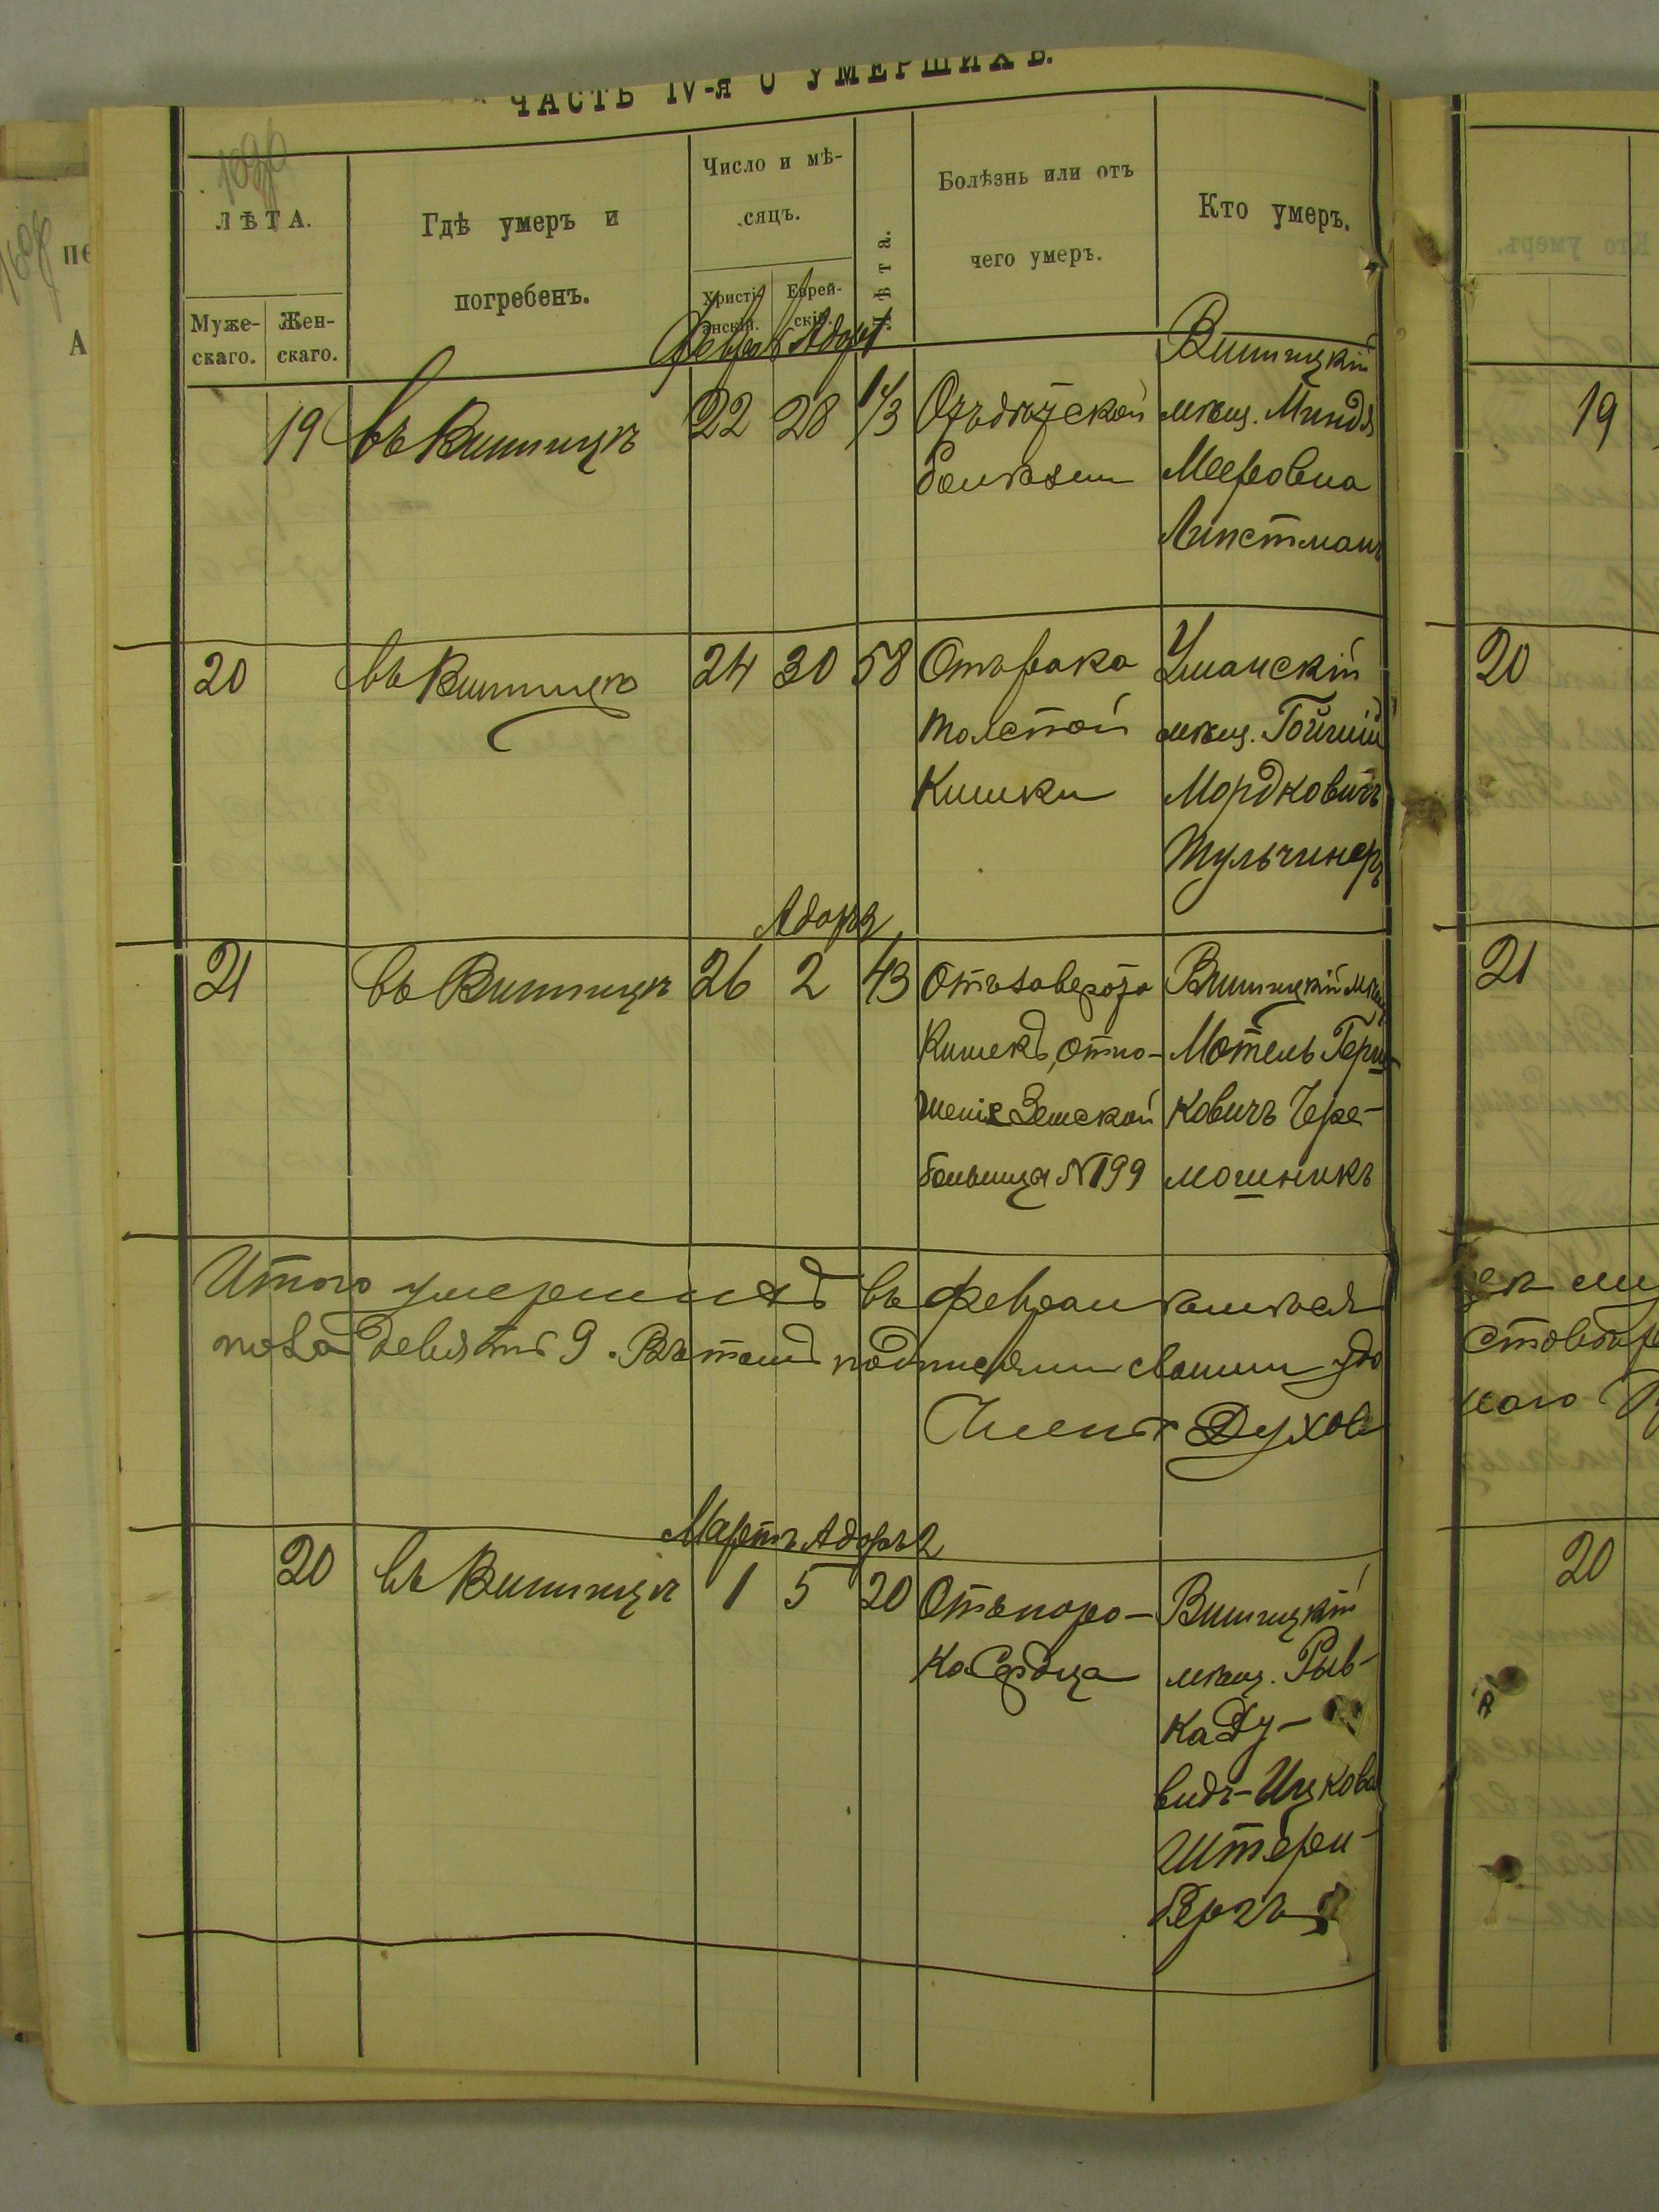 ЧАСТЬ IV-я О УМЕРШИХЪ.
ЛѢТА.
Муже-
скаго.
Жен-
скаго.
Гдѣ умеръ и
погребенъ.
Число и мѣ-
сяцъ.
Христі-
анскій.
Еврей-
скій.
Лѣта.
Болѣзнь или отъ
чего умеръ.
Кто умеръ.
Адаръ 1
19 въ Винницѣ 22 28 1/3 Отъ дѣтской
болѣзни
Винницкій
мѣщ. Миндя
Мееровна
Линстманъ
20 въ Винницѣ 24 30 58 Отъ рака
толстой
Кишки
Уманскій
мѣщ.
Мордковичъ
Тульчинеръ
Адаръ 2
21 въ Винницѣ 26 2 43 Отъ заворота
Кишекъ, отно-
шеніе Земской
больницы №199
Винницкій мѣщ
Мотель Герш-
ковичъ Чере-
мошникъ
Итого умершихъ въ февралѣ мѣсяцѣ
пола девять 9. Въ томъ подписями своими удо
Членъ Духов
Мартъ Адаръ 2
20 въ Винницѣ 1 5 20 Отъ поро-
ка Сердца
Винницкій
мѣщ. Рыв-
ка Ду-
видъ-Ицкова
Штерен-
бергъ
19
20
21
20